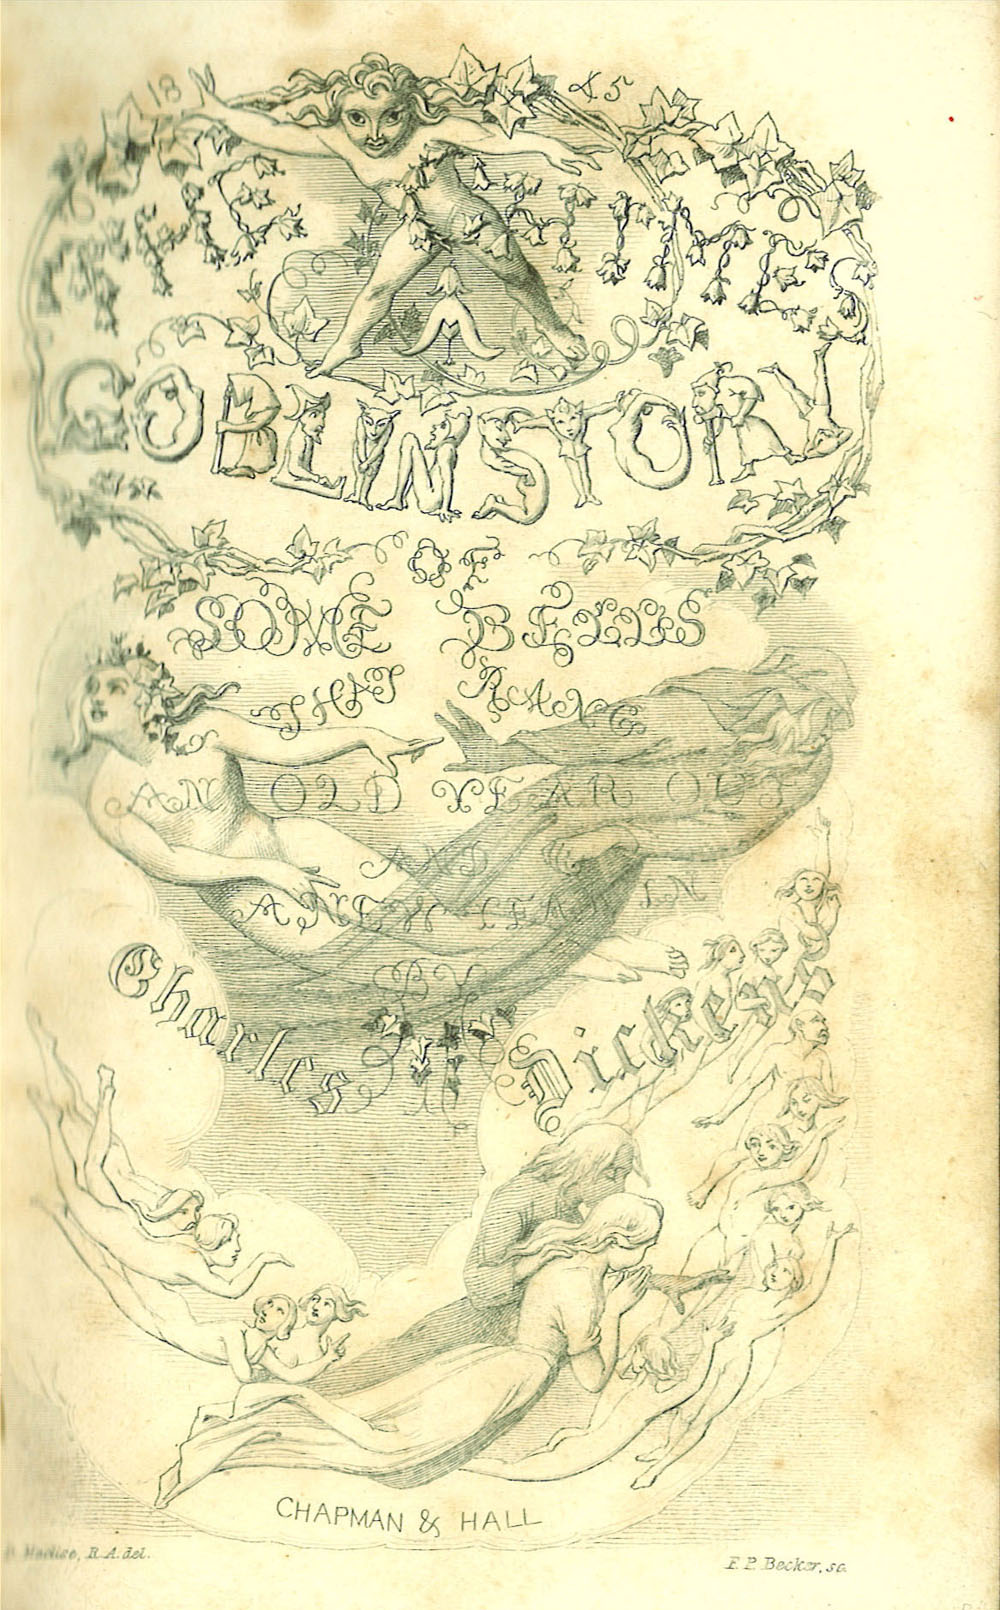 18 45
THE CHIMES
A
GOBLIN STORY
OF
SOME BELLS
THAT RANG
AN OLD YEAR OUT
AND
A NEW YEAR IN
BY
Charles Dickens
CHAPMAN & HALL
D. Maclise, R.A. del.
F. P. Becker, sc.